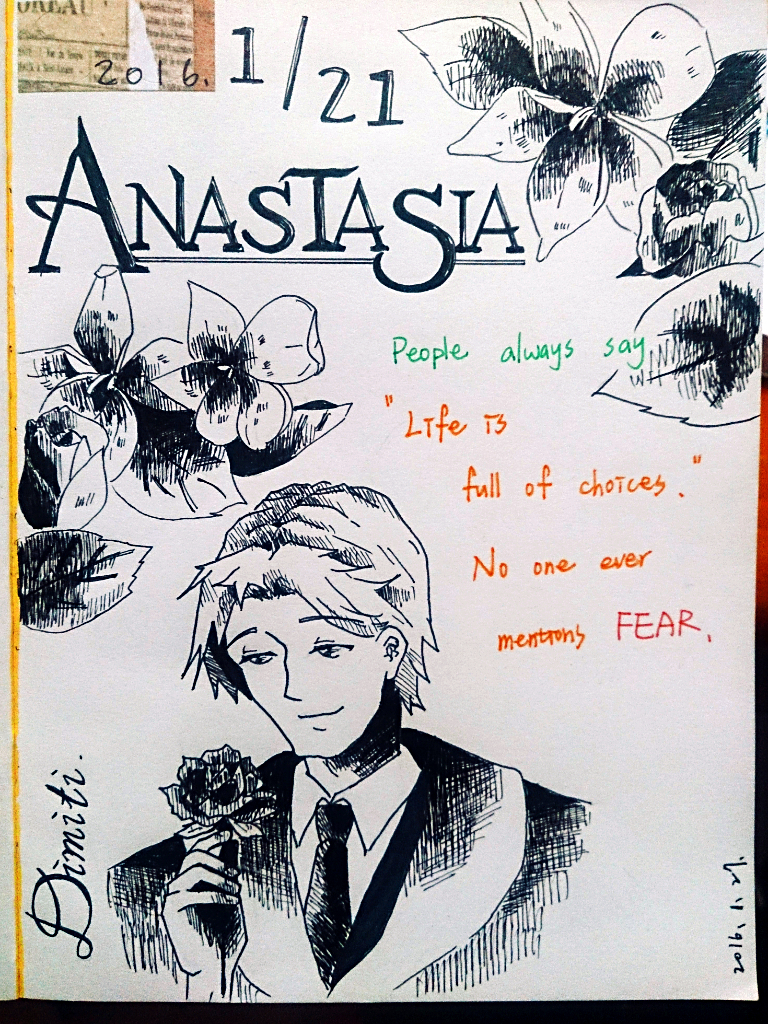 2016. 1/21
ANASTASIA
People always say
"Life is
full of choices."
No one ever
mentions FEAR.
Dimiti.
2016.1.27